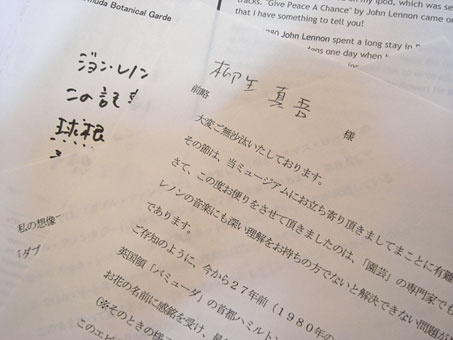 rmuda Botanical Garde
my ipod, which was se
tracks. "Give Peace A Chance" by John Lennon came on
that I have something to tell you!
John Lennon spent a long stay in
ens one day when h
ジョン・レノン
この記
球根
柳生 真吾
様
前略
大変ご無沙汰いたしております。
その節は、当ミュージアムにお立ち寄り頂きましてまことに有難
さて、この度お便りをさせて頂きましたのは、「園芸」の専門家でも
レノンの音楽にも深い理解をお持ちの方でないと解決できない問題が
であります。
ご存知のように、今から27年前(1980年の
英国領「バミューダ」の首都ハミルトン
お花の名前に感銘を受け、最
(※そのときの様子
このエピ
私の想像
『ダブ